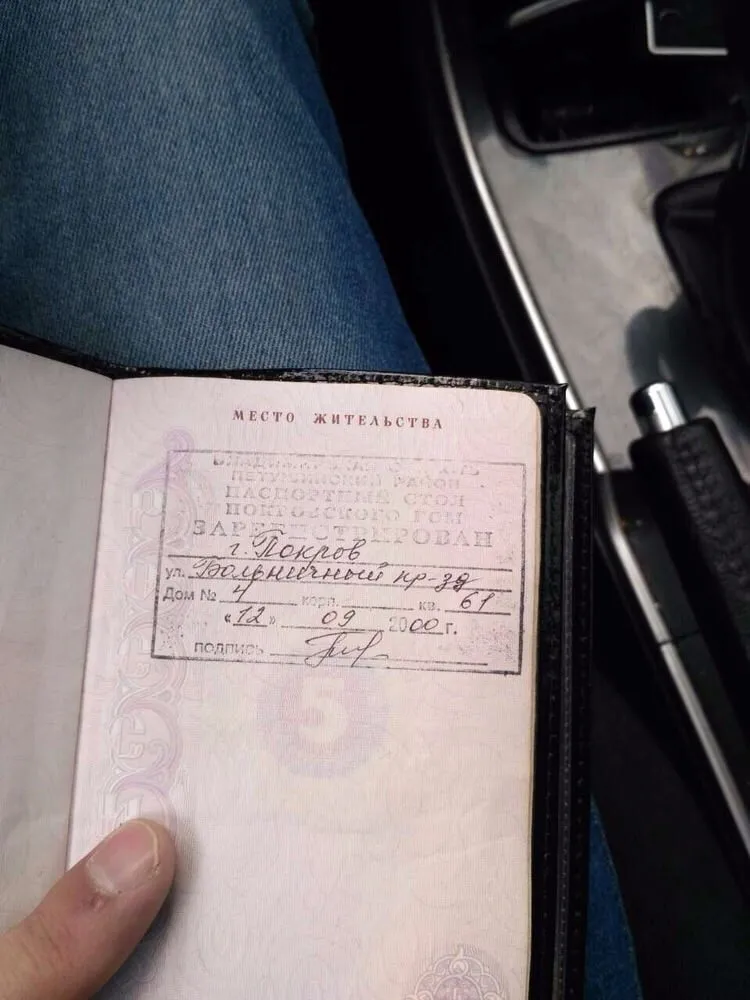 МЕСТО ЖИТЕЛЬСТВА
ВЛАДИМИРСКАЯ ОБЛАСТЬ
ПЕТУШИНСКИЙ РАЙОН
ПАСПОРТНЫЙ СТОЛ
ПОКРОВСКОГО ГОМ
ЗАРЕГИСТРИРОВАН
г. Покров
ул. Больничный пр-зд
Дом № 4 корп. кв. 61
«12» 09 2000 г.
подпись
5